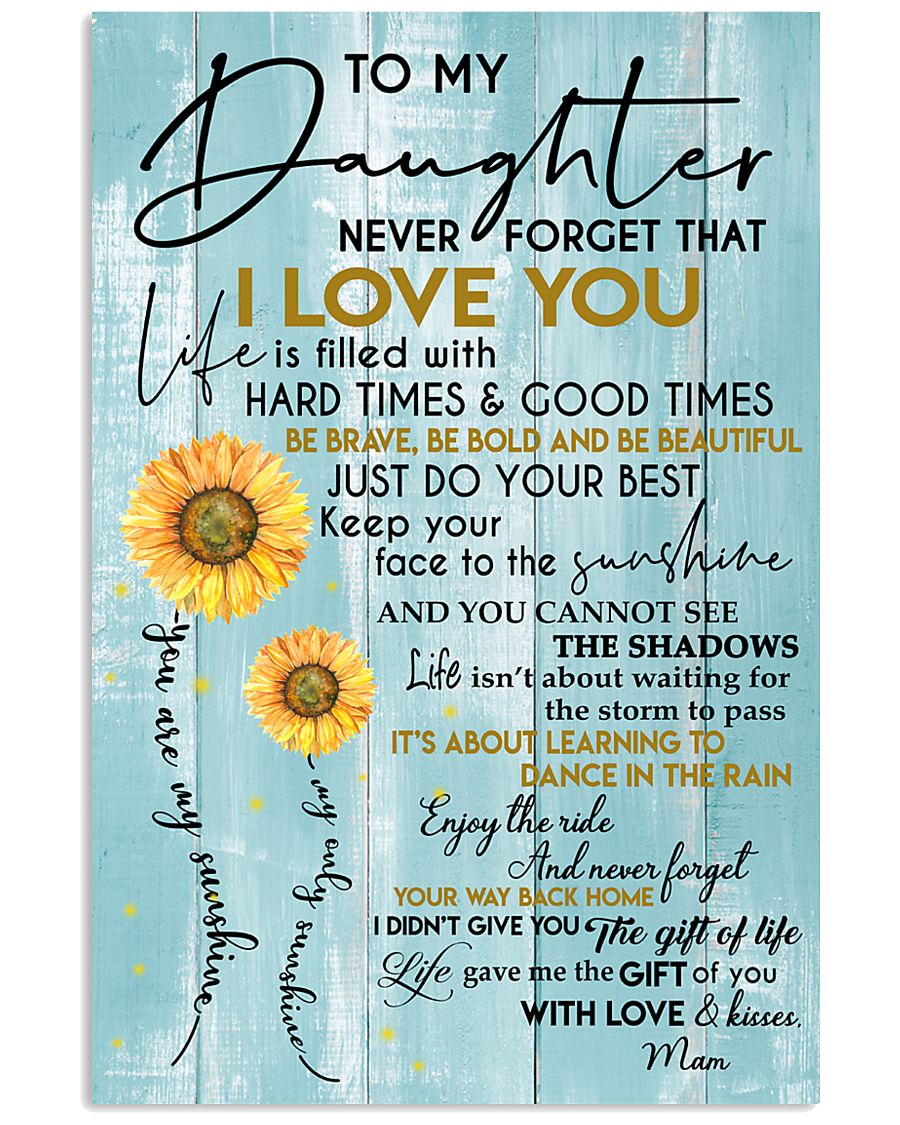 TO MY
Daughter
NEVER FORGET THAT
I LOVE YOU
Life is filled with
HARD TIMES & GOOD TIMES
BE BRAVE, BE BOLD AND BE BEAUTIFUL
JUST DO YOUR BEST
Keep your
face to the sunshine
AND YOU CANNOT SEE
THE SHADOWS
Life isn't about waiting for
the storm to pass
IT'S ABOUT LEARNING TO
DANCE IN THE RAIN
Enjoy the ride
And never forget
YOUR WAY BACK HOME
I DIDN'T GIVE YOU The gift of life
Life gave me the GIFT of you
WITH LOVE & kisses,
Mam
you are my sunshine
my only sunshine